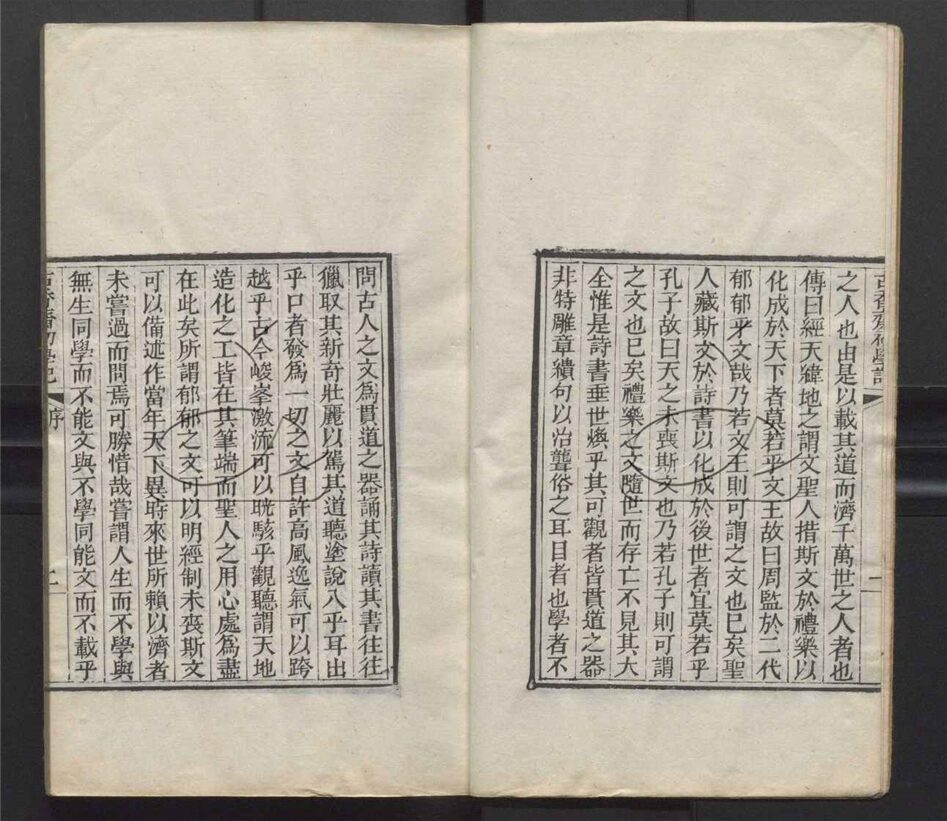 之人也由是以載其道而濟千萬世之人者也
傳曰經天緯地之謂文聖人措斯文於禮樂以
化成於天下者莫若乎文王故曰周監於二代
郁郁乎文哉乃若文王則可謂之文也已矣聖
人藏斯文於詩書以化成於後世者宜莫若乎
孔子故曰天之未喪斯文也乃若孔子則可謂
之文也已矣禮樂之文隨世而存亡不見其大
全惟是詩書垂世煥乎其可觀者皆貫道之器
非特雕章繢句以治聾俗之耳目者也學者不
一
問古人之文為貫道之器誦其詩讀其書往往
獵取其新奇壯麗以駕其道聽塗說入乎耳出
乎口者發為一切之文自許高風逸氣可以跨
越乎古今峻峯激流可以晄駭乎觀聽謂天地
造化之工皆在其筆端而聖人之用心處為盡
在此矣所謂郁郁之文可以明經制未喪斯文
可以備述作當年天下異時來世所賴以濟者
未嘗過而問焉可勝惜哉嘗謂人生而不學與
無生同學而不能文與不學同能文而不載乎
序
二